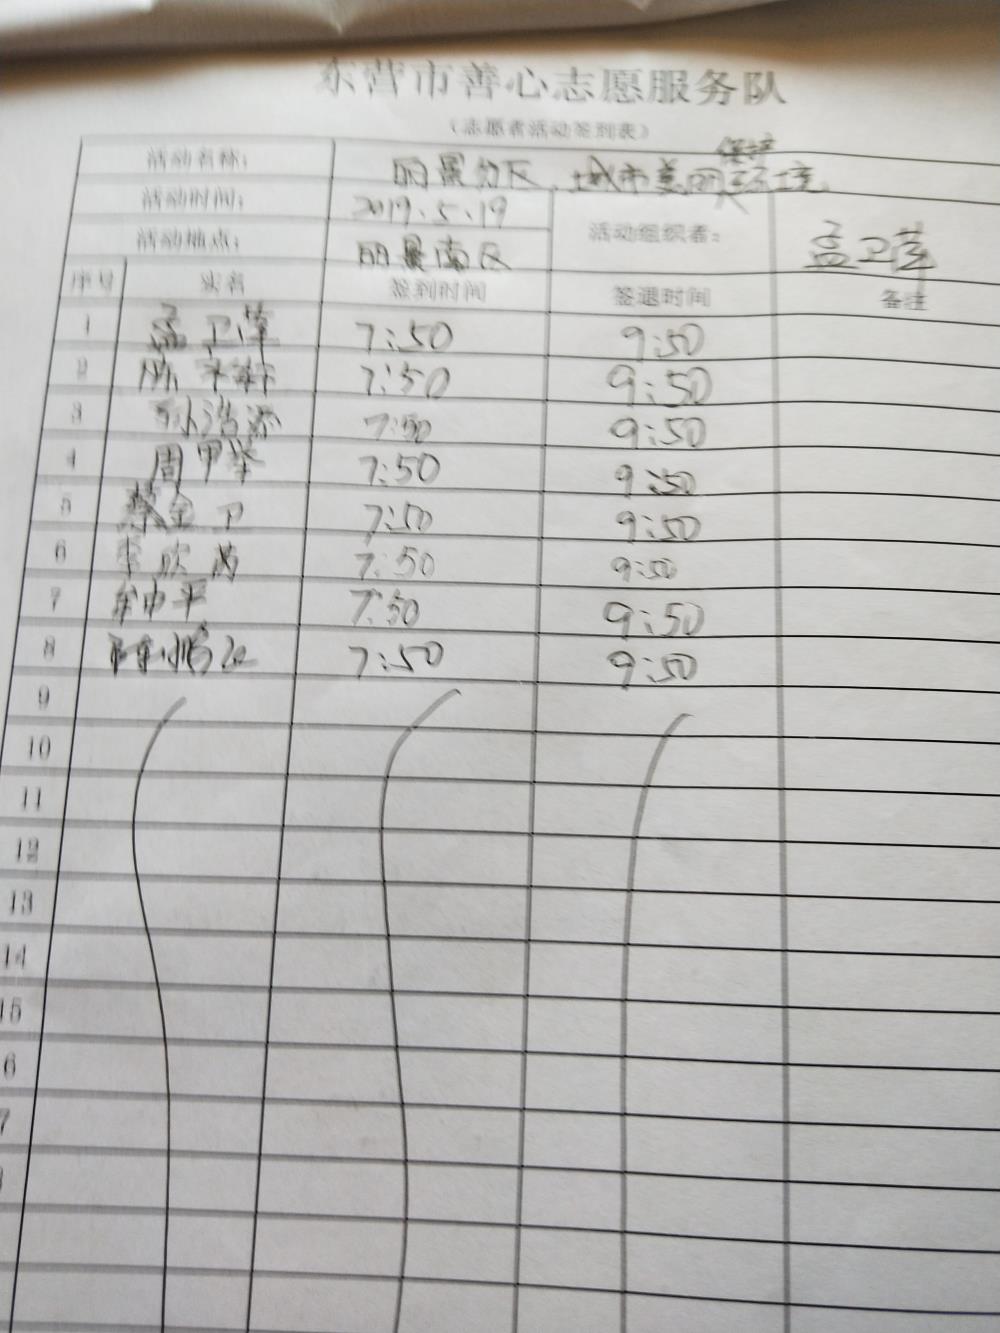 东营市善心志愿服务队
（志愿者活动签到表）
活动名称： 丽景分区、城市美丽保护环境
活动时间： 2019.5.19
活动地点： 丽景南区 活动组织者： 孟卫萍
序号 实名 签到时间 签退时间 备注
1 孟卫萍 7:50 9:50
2 7:50 9:50
3 孙浩添 7:50 9:50
4 周甲 7:50 9:50
5 蔡金卫 7:50 9:50
6 李欣 7:50 9:50
7 牟中平 7:50 9:50
8 7:50 9:50
9
10
11
12
13
14
15
6
7